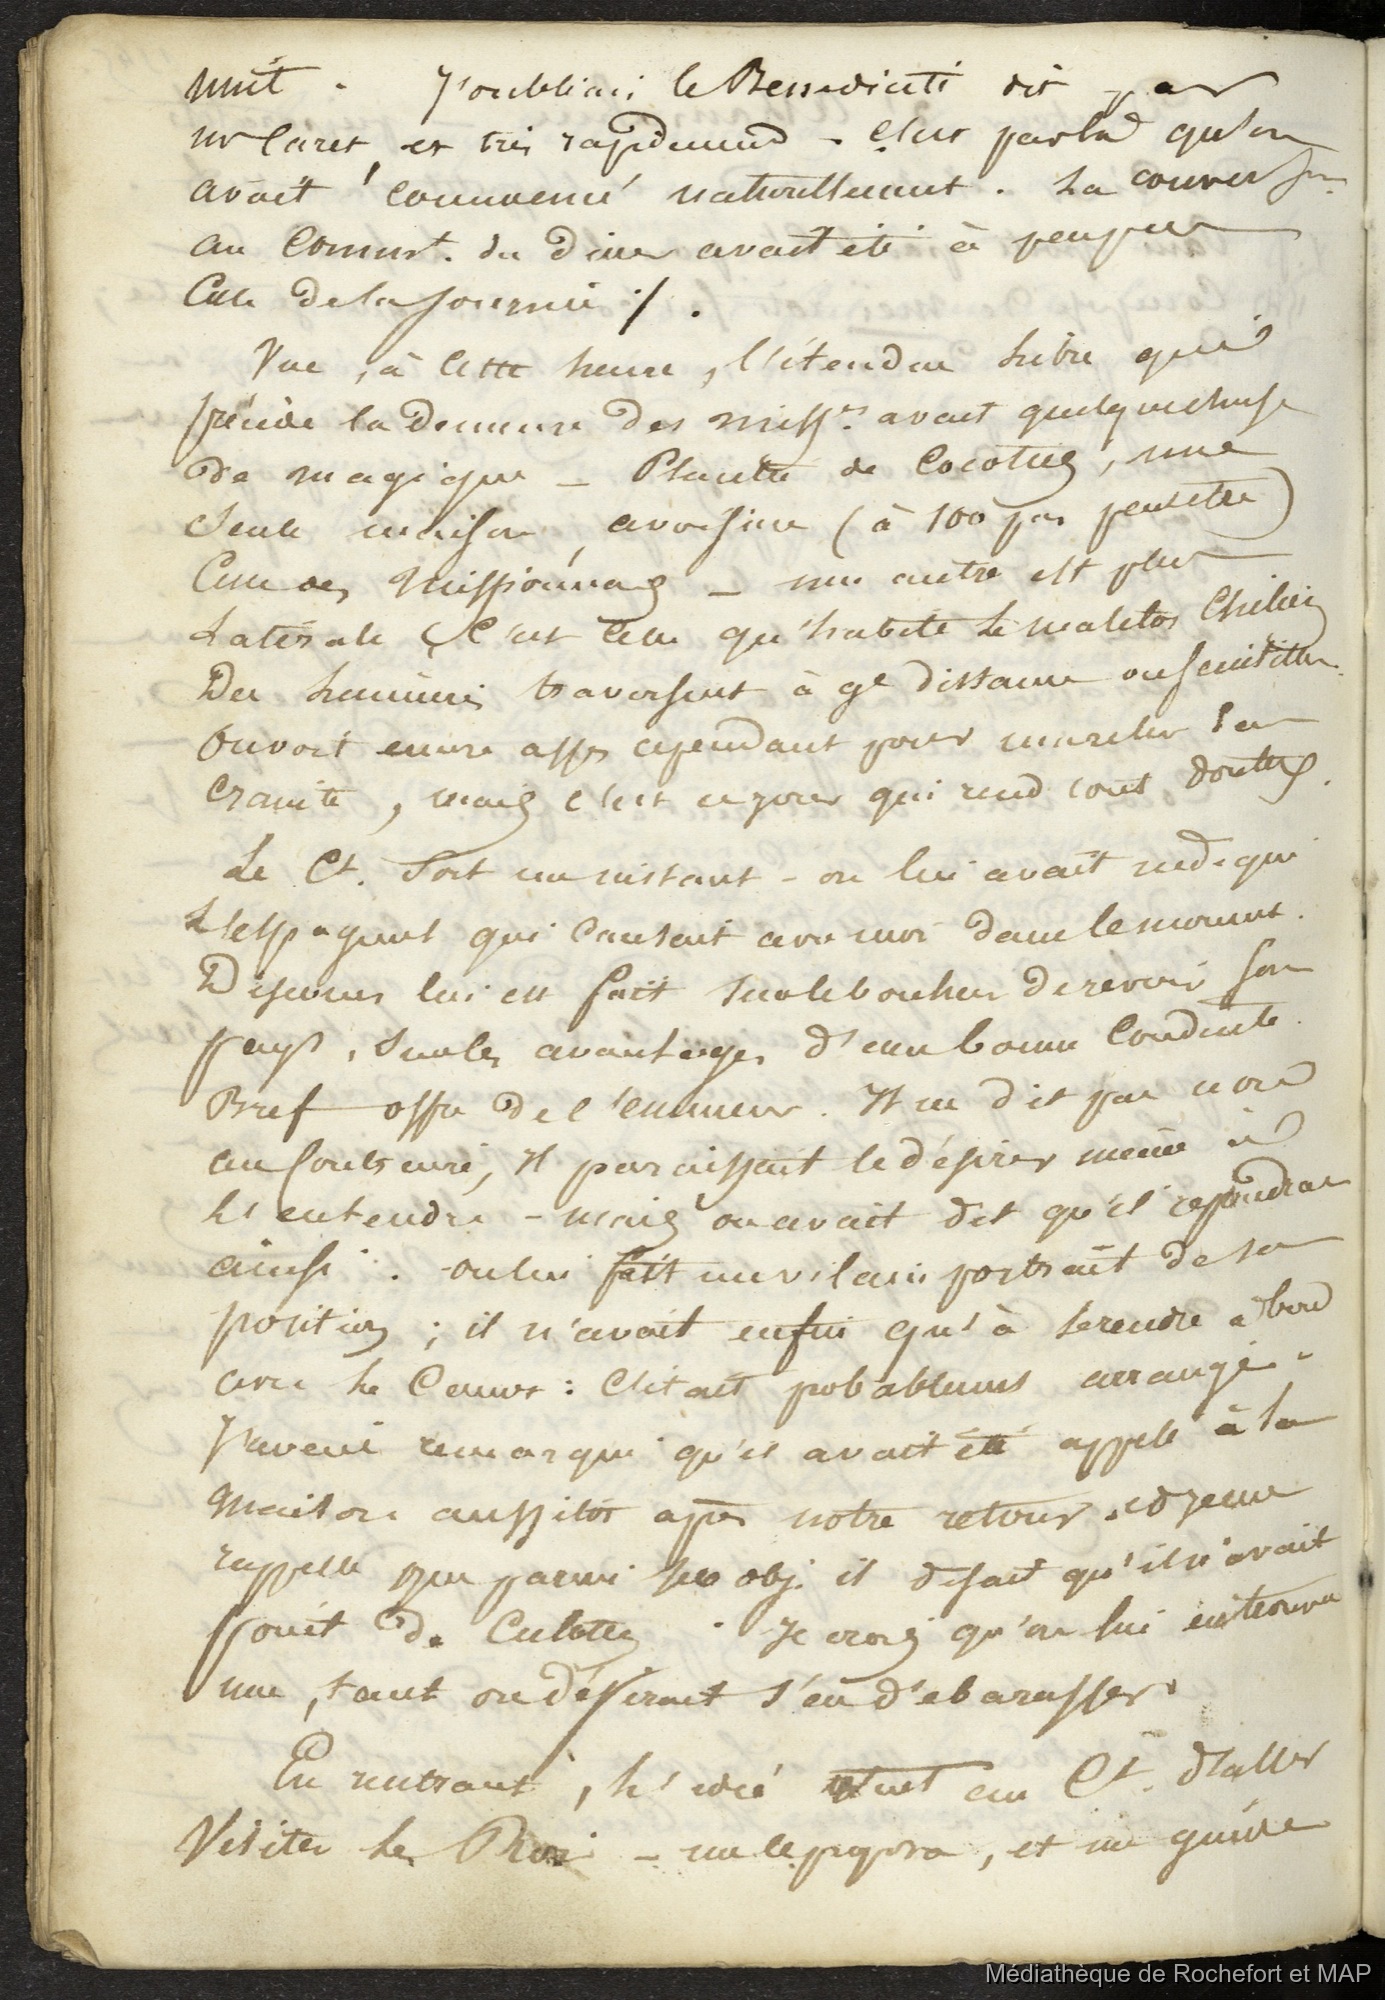 nuit. J'oubliai le Benedicité dit par
mr Caret et très rapidement - C'est par là qu'on
avait commencé naturellement. La convers.on
au commt. du diner avait été à peu près
celle de la journée /.
Vue, à cette heure, l'étendue libre qui
précède la demeure des miss.res avait quelque chose
de magique - Plantée de Cocotiers, une
seule maison, avoisine (à 100 pas peut être)
celle des Missionnaires - une autre est plus
latérale (C'est celle qu'habite le matelos Chilien
Des lumières traversent à gde distance
on voit encore assez cependant pour marcher sans
crainte, mais c'est un jour qui rend tout douteux.
Le Ct. sort un instant - on lui avait indiqué
l'Espagnol qui causait avec moi dans le moment.
Discours lui est fait sur le bonheur de revoir son
pays, sur les avantages d'une bonne conduite.
Bref offre de l'emmener. Il ne dit pas non
au contraire, Il paraissait le désirer même à
l'entendre - mais on avait dit qu'il repondrait
ainsi. on lui fait un vilain portrait de sa
position ; il n'avait enfin qu'à se rendre à bord
avec le Canot : C'était probablement arrangé.
J'avais remarqué qu'il avait été appelé à la
maison aussitôt après notre retour. et je me
rappelle que parmi ses obj. il disait qu'il n'avait
point de Culottes. Je crois qu'on lui en trouva
une, tant on désirait s'en débarasser.
En rentrant, l'idée vint au Ct. d'aller
visiter le Roi - me le proposa, et un guide